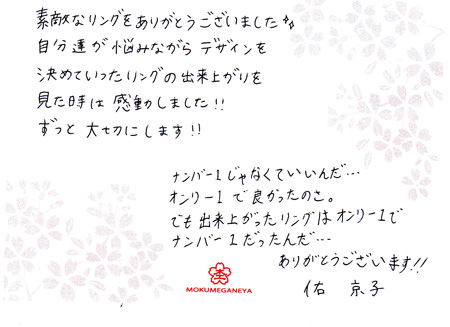 素敵なリングをありがとうございました〃
自分達が悩みながらデザインを
決めていったリングの出来上がりを
見た時は感動しました!!
ずっと大切にします!!
ナンバー1じゃなくていいんだ…
オンリー1で良かったのさ。
でも出来上がったリングはオンリー1で
ナンバー1だったんだ…
ありがとうございます!!
佑 京子
MOKUMEGANEYA